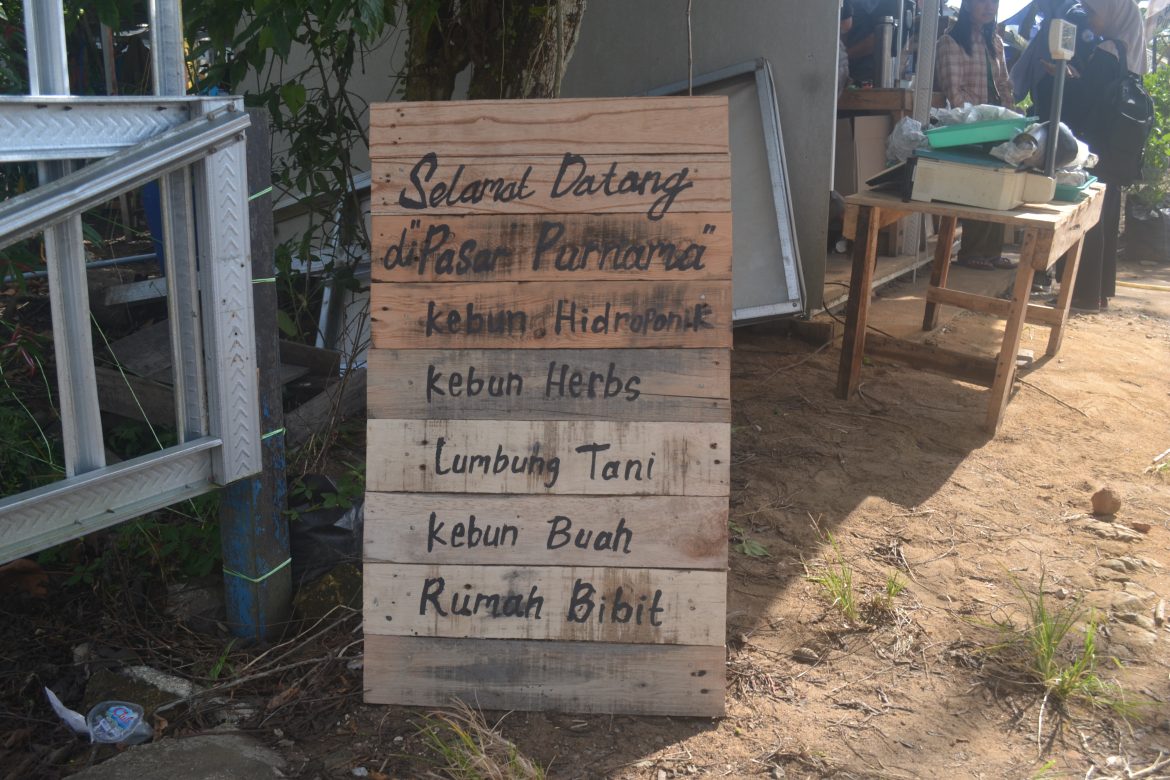 Selamat Datang
di "Pasar Purnama"
Kebun Hidroponik
Kebun Herbs
Lumbung Tani
Kebun Buah
Rumah Bibit